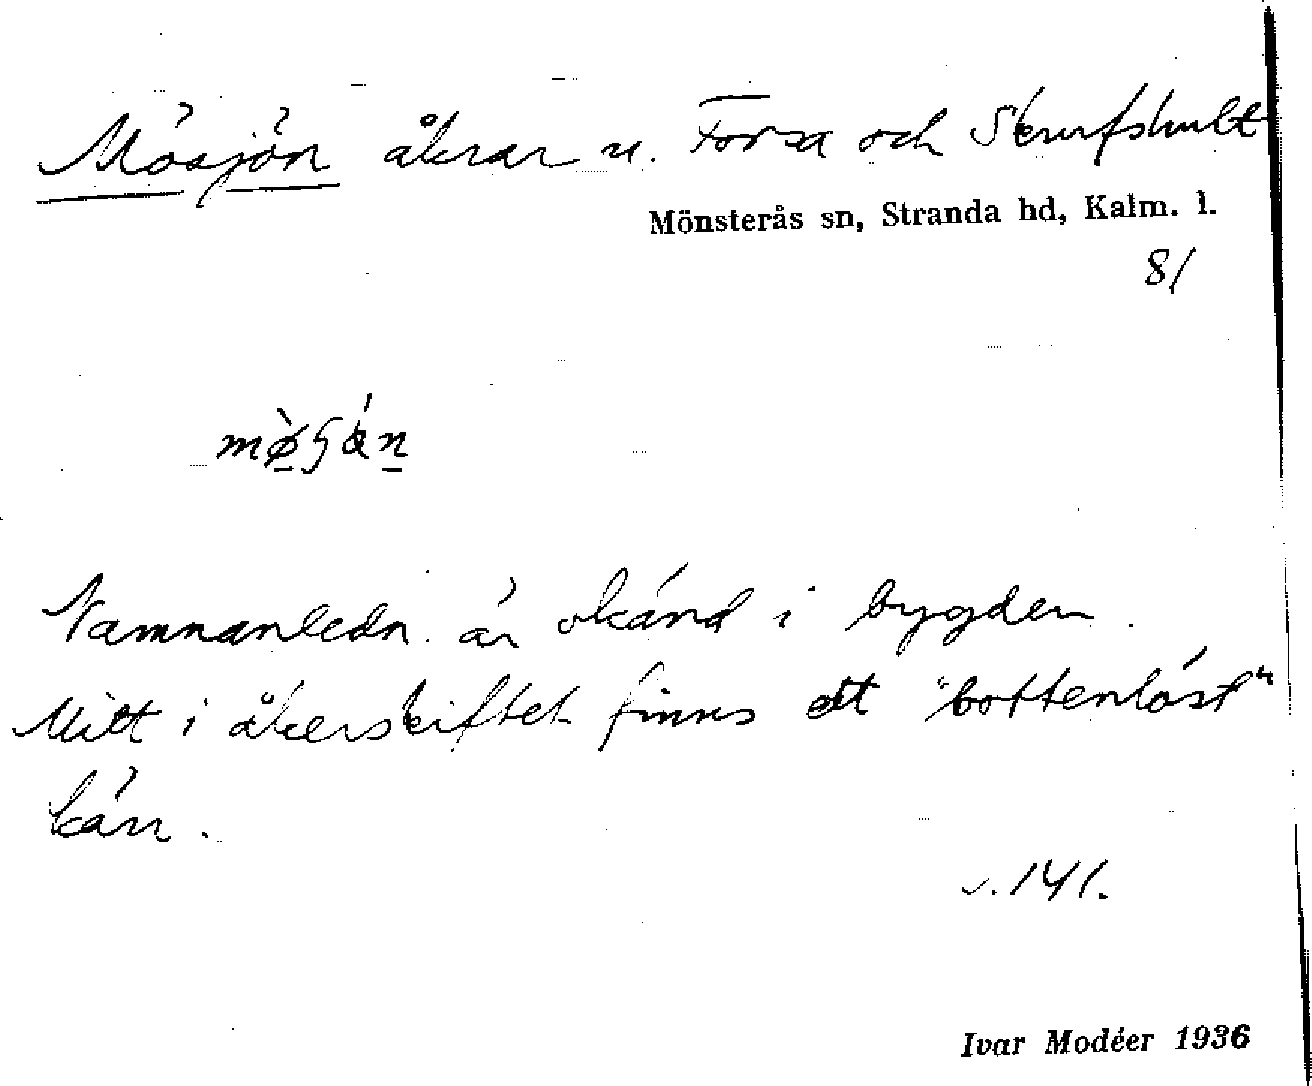 Mösjön åkrar u. Forsa och Skrufshult
Mönsterås sn, Stranda hd, Kalm. l.
81
Namnanledn. är okänd i bygden.
Mitt i åkerskiftet finns ett "bottenlöst"
kärr.
s. 141.
Ivar Modéer 1936